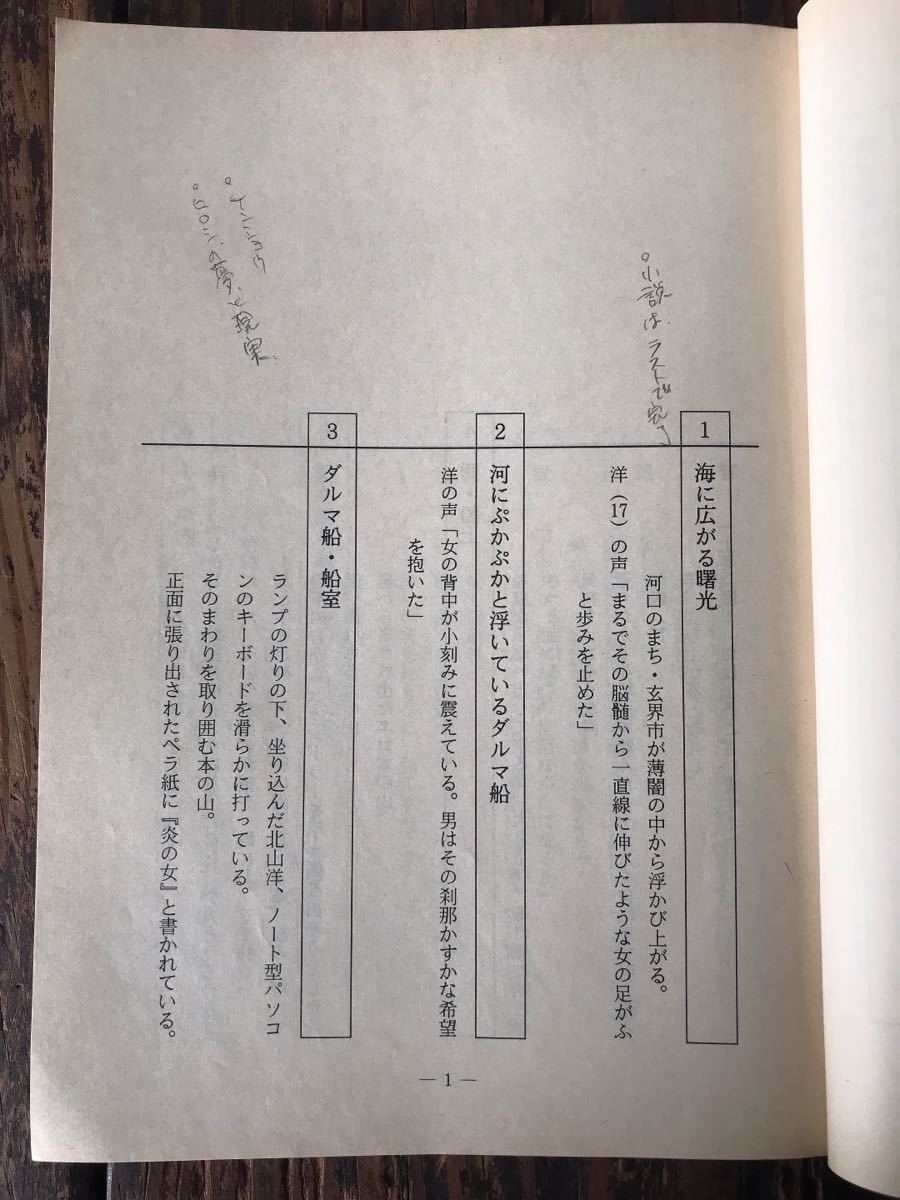 1
海に広がる曙光
河口のまち・玄界市が薄闇の中から浮かび上がる。
洋(17)の声「まるでその脳髄から一直線に伸びたような女の足がふ
と歩みを止めた」
2
河にぷかぷかと浮いているダルマ船
洋の声「女の背中が小刻みに震えている。男はその刹那かすかな希望
を抱いた」
3
ダルマ船・船室
ランプの灯りの下、坐り込んだ北山洋、ノート型パソコ
ンのキーボードを滑らかに打っている。
そのまわりを取り囲む本の山。
正面に張り出されたペラ紙に『炎の女』と書かれている。
小説は、ラストで完了
インショウ
ヒロシの夢と現実
— 1 —